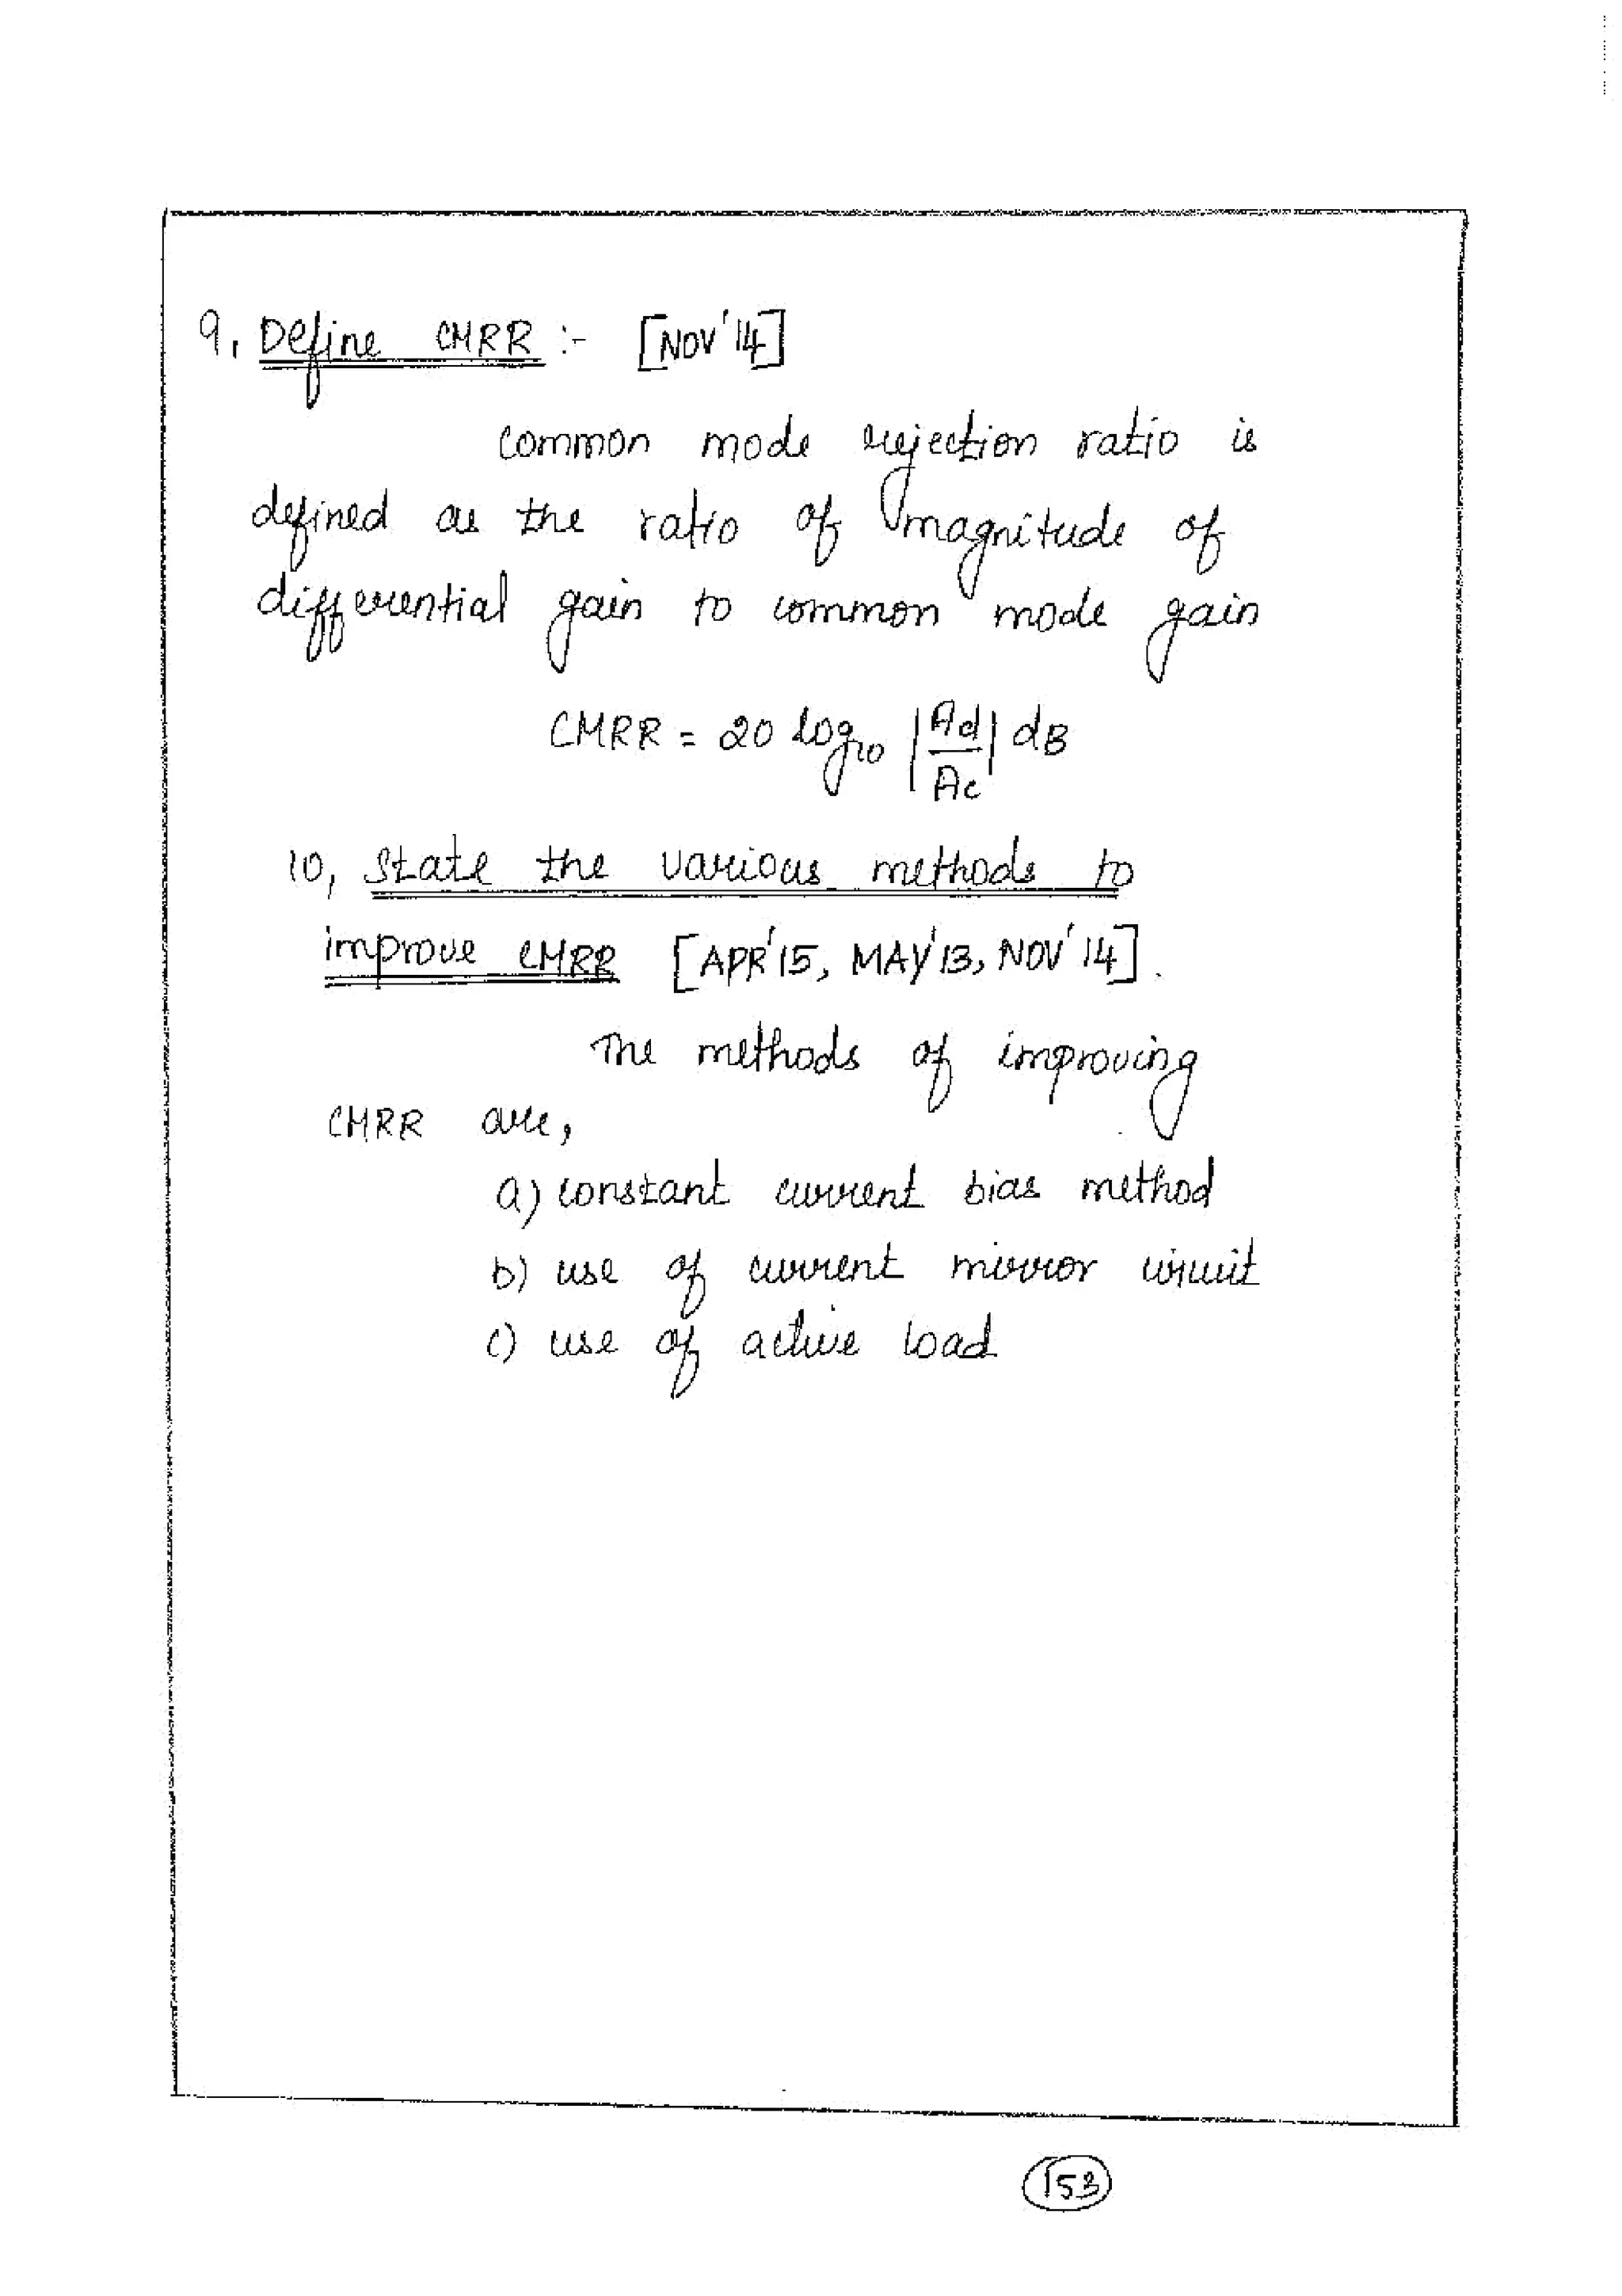 9, Define CMRR :- [NOV'14]
common mode rejection ratio is
defined as the ratio of magnitude of
differential gain to common mode gain
CMRR = 20 log10 |Ad/Ac| dB
10, State the various methods to
improve CMRR [APR'15, MAY'13, NOV'14].
The methods of improving
CMRR are,
a) constant current bias method
b) use of current mirror circuit
c) use of active load
153